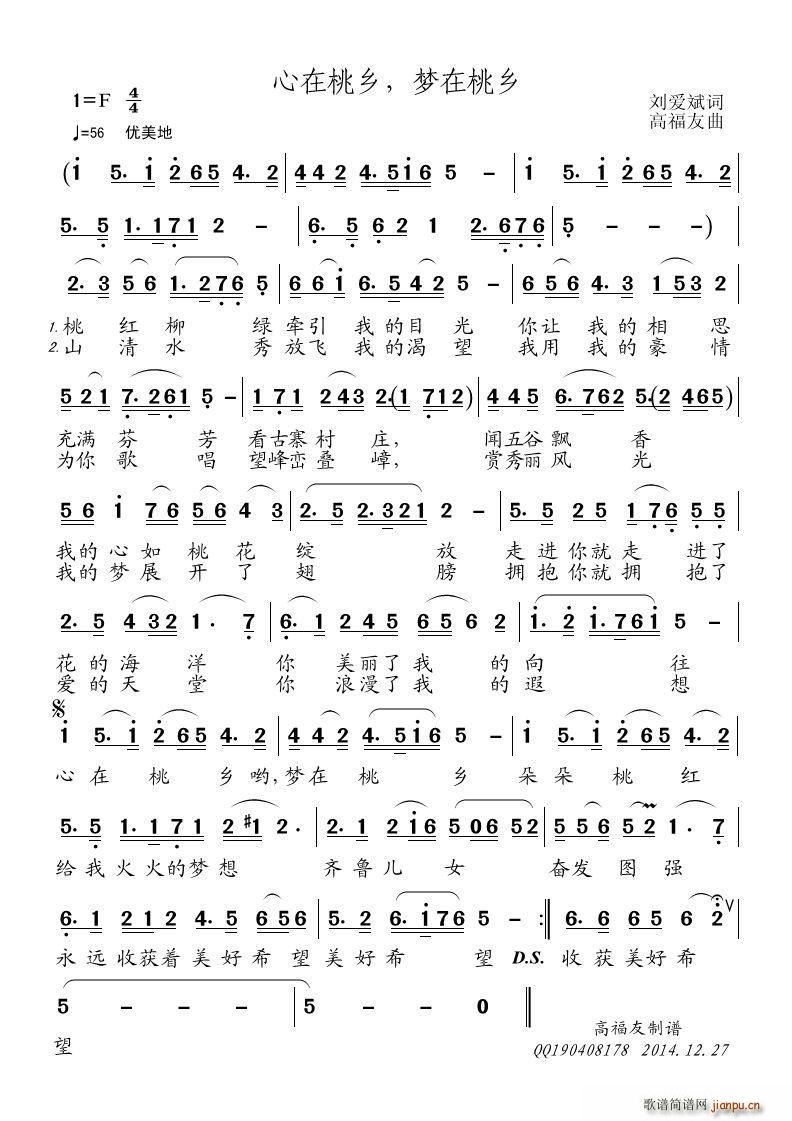 心在桃乡，梦在桃乡
1=F 4/4
刘爱斌词
♩=56 优美地
高福友曲
(1 5. 1 2 6 5 4. 2 | 4 4 2 4. 5 1 6 5 – | 1 5. 1 2 6 5 4. 2 |
5. 5 1. 1 7 1 2 – | 6. 5 6 2 1 2. 6 7 6 | 5 – – –) |
2. 3 5 6 1. 2 7 6 5 | 6 6 1 6. 5 4 2 5 – | 6 5 6 4. 3 1 5 3 2 |
1. 桃 红 柳 绿 牵引 我 的目 光 你让 我 的 相 思
2. 山 清 水 秀 放飞 我 的渴 望 我用 我 的 豪 情
5 2 1 7. 2 6 1 5 – | 1 7 1 2 4 3 2.(1 7 1 2) | 4 4 5 6. 7 6 2 5.(2 4 6 5) |
充满 芬 芳 看古寨 村 庄， 闻五谷 飘 香
为你 歌 唱 望峰峦 叠 嶂， 赏秀丽 风 光
5 6 1 7 6 5 6 4 3 | 2. 5 2. 3 2 1 2 – | 5. 5 2 5 1 7 6 5 5 |
我的 心 如 桃 花 绽 放 走 进 你就 走 进了
我的 梦 展 开 了 翅 膀 拥 抱 你就 拥 抱了
2. 5 4 3 2 1. 7 | 6. 1 2 4 5 6 5 6 2 | 1. 2 1. 7 6 1 5 – |
花 的 海 洋 你 美丽了 我 的 向 往
爱 的 天 堂 你 浪漫了 我 的 遐 想
𝄋
1 5. 1 2 6 5 4. 2 | 4 4 2 4. 5 1 6 5 – | 1 5. 1 2 6 5 4. 2 |
心 在 桃 乡 哟，梦 在 桃 乡 朵 朵 桃 红
5. 5 1. 1 7 1 2 #1 2. | 2. 1 2 1 6 5 0 6 5 2 | 5 5 6 5 2 1. 7 |
给 我 火 火 的 梦 想 齐 鲁 儿 女 奋发 图 强
6. 1 2 1 2 4. 5 6 5 6 | 5. 2 6. 1 7 6 5 – :‖ 6. 6 6 5 6 2 ∨ |
永 远 收获着 美 好 希 望 美 好 希 望 D.S. 收 获 美好 希
5 – – – | 5 – – 0 ‖
望
高福友制谱
QQ190408178 2014.12.27
歌谱简谱网 jianpu.cn